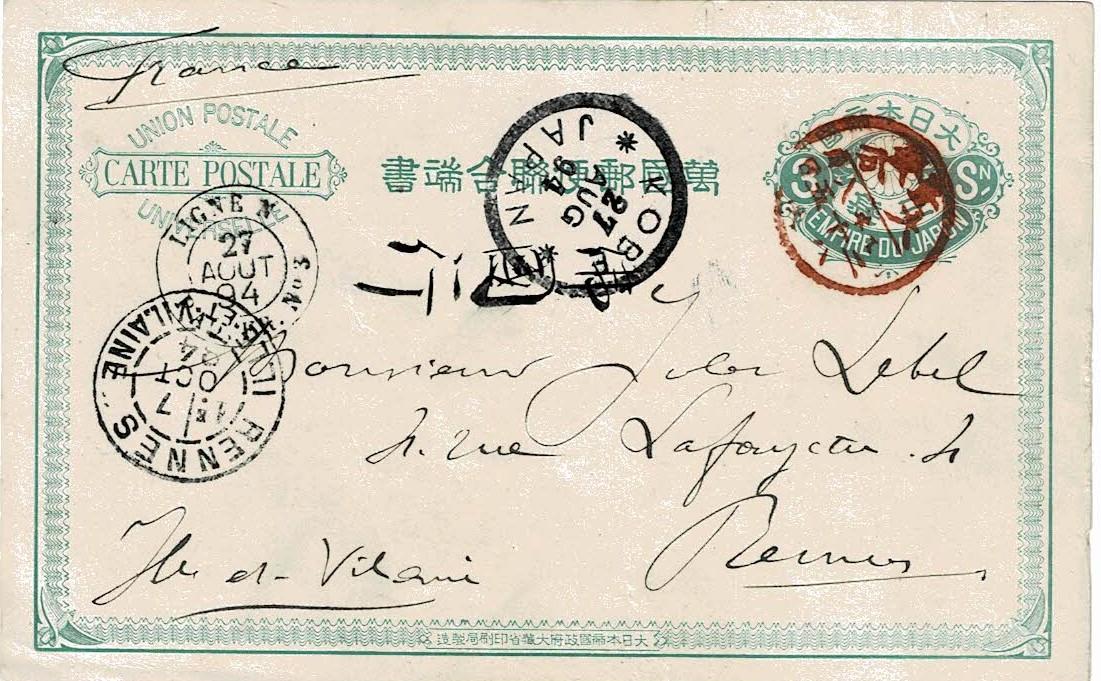 France
UNION POSTALE
CARTE POSTALE
UNIVERSELLE
萬國郵便聯合端書
大日本帝國
3 Sn
EMPIRE DU JAPON
KOBE
27
AUG
94
JAPAN
LIGNE N
27
AOUT
94
RENNES
7
OCT
94
ILLE-ET-VILAINE
Monsieur Jules Lebel
4. rue Lafayette. 4
Rennes
Ille et Vilaine
大日本帝國政府大藏省印刷局製造